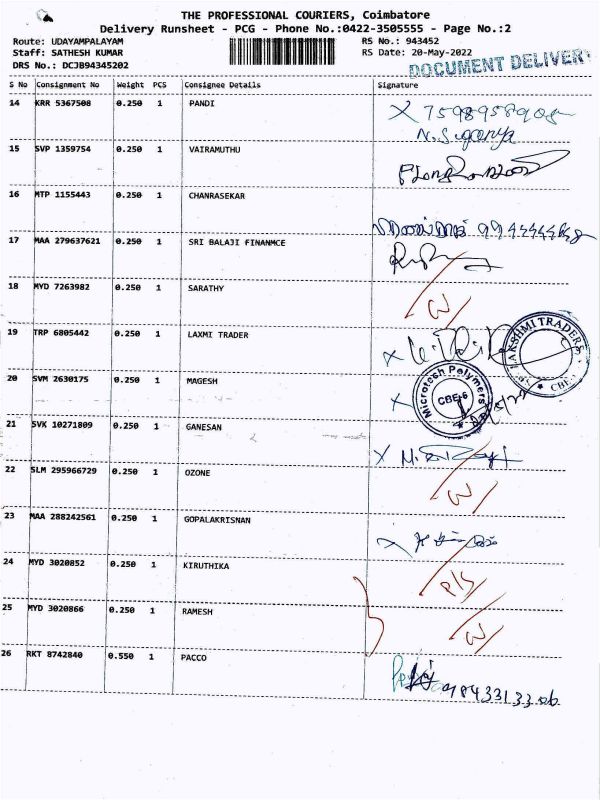 THE PROFESSIONAL COURIERS, Coimbatore
Delivery Runsheet - PCG - Phone No.:0422-3505555 - Page No.:2
Route: UDAYAMPALAYAM RS No.: 943452
Staff: SATHESH KUMAR RS Date: 20-May-2022
DRS No.: DCJB94345202 DOCUMENT DELIVERY
S No Consignment No Weight PCS Consignee Details Signature
14 KRR 5367508 0.250 1 PANDI X 7598958908
N. Suganya
15 SVP 1359754 0.250 1 VAIRAMUTHU
16 MTP 1155443 0.250 1 CHANRASEKAR
17 MAA 279637621 0.250 1 SRI BALAJI FINANMCE
18 MYD 7263982 0.250 1 SARATHY
19 TRP 6805442 0.250 1 LAXMI TRADER X
LAKSHMI TRADERS CBE
20 SVM 2630175 0.250 1 MAGESH X
Microtech Polymers CBE-6
21 SVK 10271809 0.250 1 GANESAN X
22 SLM 295966729 0.250 1 OZONE
23 MAA 288242561 0.250 1 GOPALAKRISNAN X
24 MYD 3020852 0.250 1 KIRUTHIKA
25 MYD 3020866 0.250 1 RAMESH
26 RKT 8742840 0.550 1 PACCO 9843313306